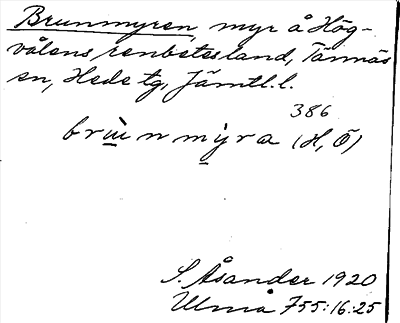 Brunmyren, myr å Hög-
vålens renbetesland, Tännäs
sn, Hede tg, Jämtl. l.
386
brùnmỳra (H, Ö)
S. Åsander 1920
Ulma 755:16:25